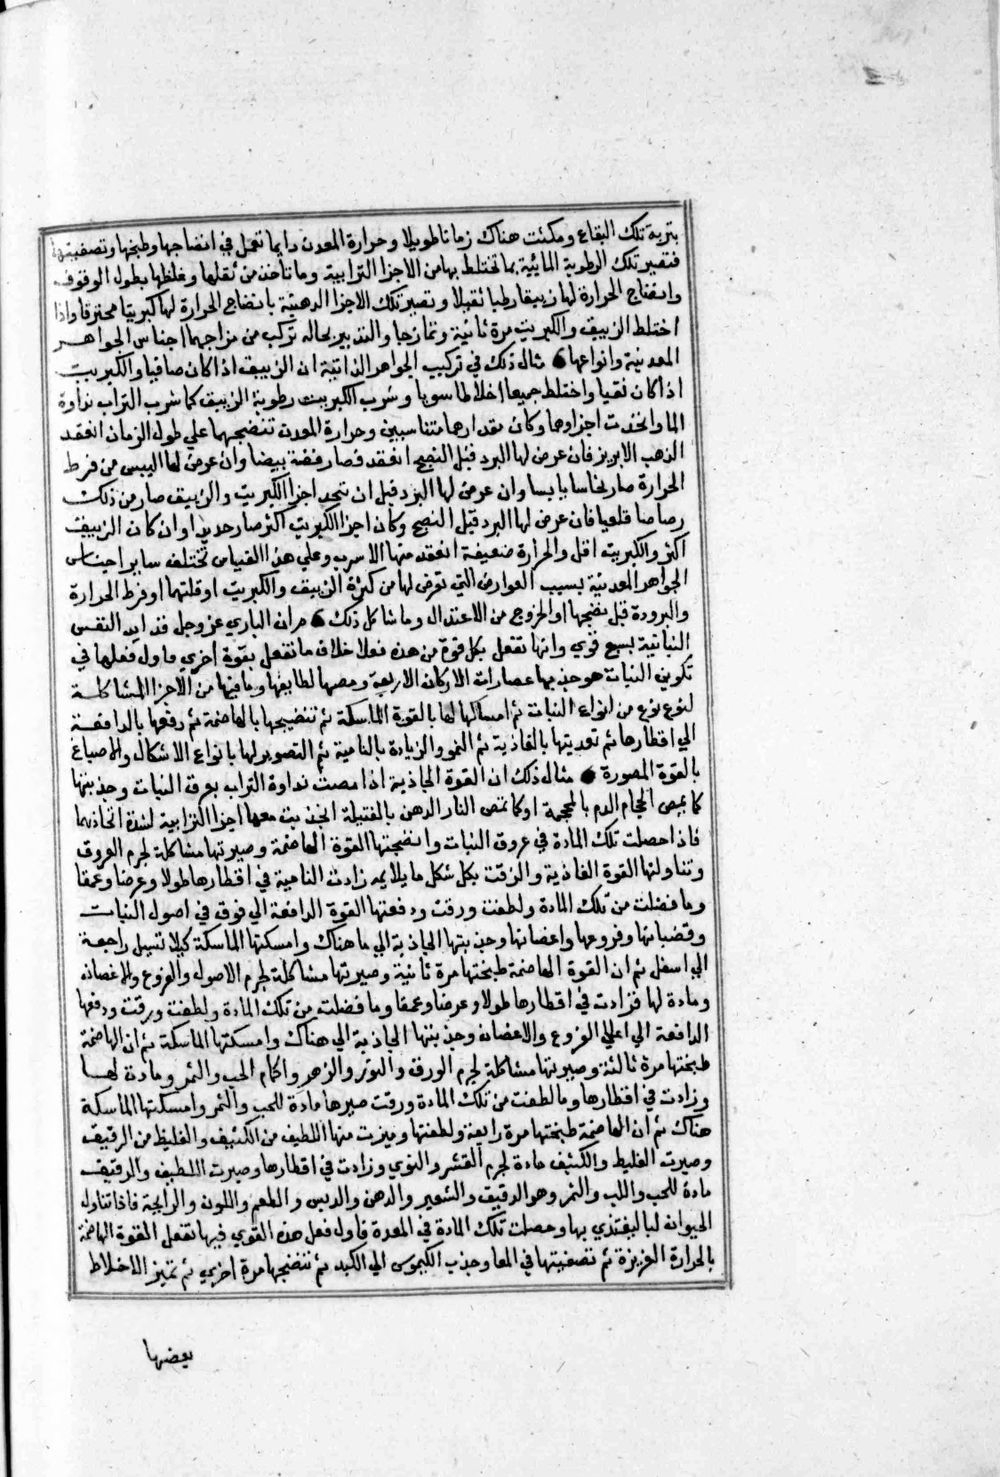 بتربة تلك البقاع ومكثت هناك زمانا طويلا وحرارة المعدن دايما تعمل في انضاجها وطبخها وتصفيتها
فتصير تلك الرطوبة المائية بما تختلط بها من الاجزا الترابية وما تاخذ من ثقلها وغلظها بطول الوقوف
وانضاج الحرارة لها زيبقا رطبا ثقيلا وتصير تلك الاجزا الدهنية بانضاج الحرارة لها كبريتا محترقا واذا
اختلط الزيبق والكبريت مرة ثانية وتمازجا والتدبير بحاله تركب من مزاجهما اجناس الجواهر
المعدنية وانواعها مثال ذلك في تركيب الجواهر الذاتية ان الزيبق اذا كان صافيا والكبريت
اذا كان نقيا واختلط جميعا اختلاطا سويا وشرب الكبريت رطوبة الزيبق كما شرب التراب نداوة
الما واتحدت اجزاوها وكان مقدارهما متناسبين وحرارة المعدن تنضجهما علي طول الزمان انعقد
الذهب الابريز فان عرض لها البرد قبل النضج انعقد فصار فضة بيضا وان عرض لها اليبس من فرط
الحرارة صار نحاسا يابسا وان عرض لها البرد قبل ان تتحد اجزا الكبريت والزيبق صار من ذلك
رصاصا قلعيا فان عرض لها البرد قبل النضج وكان اجزا الكبريت اكثر صار حديدا وان كان الزيبق
اكثر والكبريت اقل والحرارة ضعيفة انعقد منها الاسرب وعلي هذا القياس تختلف ساير اجناس
الجواهر المعدنية بسبب العوارض التي تعرض لها من كثرة الزيبق والكبريت او قلتهما او فرط الحرارة
والبرودة قبل نضجها او الخروج من الاعتدال وما شاكل ذلك ان الباري عز وجل قد ايد النفس
النباتية بسبع قوي وانها تفعل بكل قوة من هذه فعلا خلاف ما تفعل بقوة اخري فاول فعلها في
تكوين النبات هو جذبها عصارات الاركان الاربعة ومصها لطايفها وما فيها من الاجزا المشاكلة
لنوع نوع من انواع النبات ثم امساكها لها بالقوة الماسكة ثم تنضيجها بالهاضمة ثم دفعها بالدافعة
الي اقطارها ثم تغذيتها بالغاذية ثم النمو والزيادة بالنامية ثم التصوير لها بانواع الاشكال والاصباغ
بالقوة المصورة مثال ذلك ان القوة الجاذبة اذا مصت نداوة التراب بعرق النبات وجذبتها
كما يمص الحجام الدم بالمحجمة او كما تمص النار الدهن بالفتيلة انجذبت معها اجزا الترابية لشدة اتحادهما
فاذا حصلت تلك المادة في عروق النبات وانضجتها القوة الهاضمة وصيرتها مشاكلة لجرم العروق
وتناولتها القوة الغاذية والزقت بكل شكل ما يلايمه زادت النامية في اقطارها طولا وعرضا وعمقا
وما فضلت من تلك المادة ولطفت ورقت ودفعتها القوة الدافعة الي فوق في اصول النبات
وقضبانها وفروعها واغصانها وجذبتها الجاذبة الي ما هناك وامسكتها الماسكة كيلا تسيل راجعة
الي اسفل ثم ان القوة الهاضمة طبختها مرة ثانية وصيرتها مشاكلة لجرم الاصول والفروع والاغصان
ومادة لها فزادت في اقطارها طولا وعرضا وعمقا وما فضلت من تلك المادة ولطفت ورقت ودفعها
الدافعة الي اعلي الفروع والاغصان وجذبتها الجاذبة الي هناك وامسكتها الماسكة ثم ان الهاضمة
طبختها مرة ثالثة وصيرتها مشاكلة لجرم الورق والنور والزهر واكمام الحب والثمر ومادة لها
وزادت في اقطارها وما لطفت من تلك المادة ورقت صيرها مادة للحب والثمر وامسكتها الماسكة
هناك ثم ان الهاضمة طبختها مرة رابعة ولطفتها وميزت منها اللطيف من الكثيف والغليظ من الرقيق
وصيرت الغليظ والكثيف مادة لجرم القشر والنوي وزادت في اقطارها وصيرت اللطيف والرقيق
مادة للحب واللب والثمر وهو الدقيق والشعير والدهن والدبس والطعم واللون والرايحة فاذا تناول
الحيوان لبا ليغتذي بها وحصلت تلك المادة في المعدة فاول فعل هذه القوي فيها تفعل القوة الهاضمة
بالحرارة الغزيزة ثم تصفيتها في المعا وجذب الكيموس الي الكبد ثم تنضجها مرة اخري ثم تميز الاخلاط
بعضها